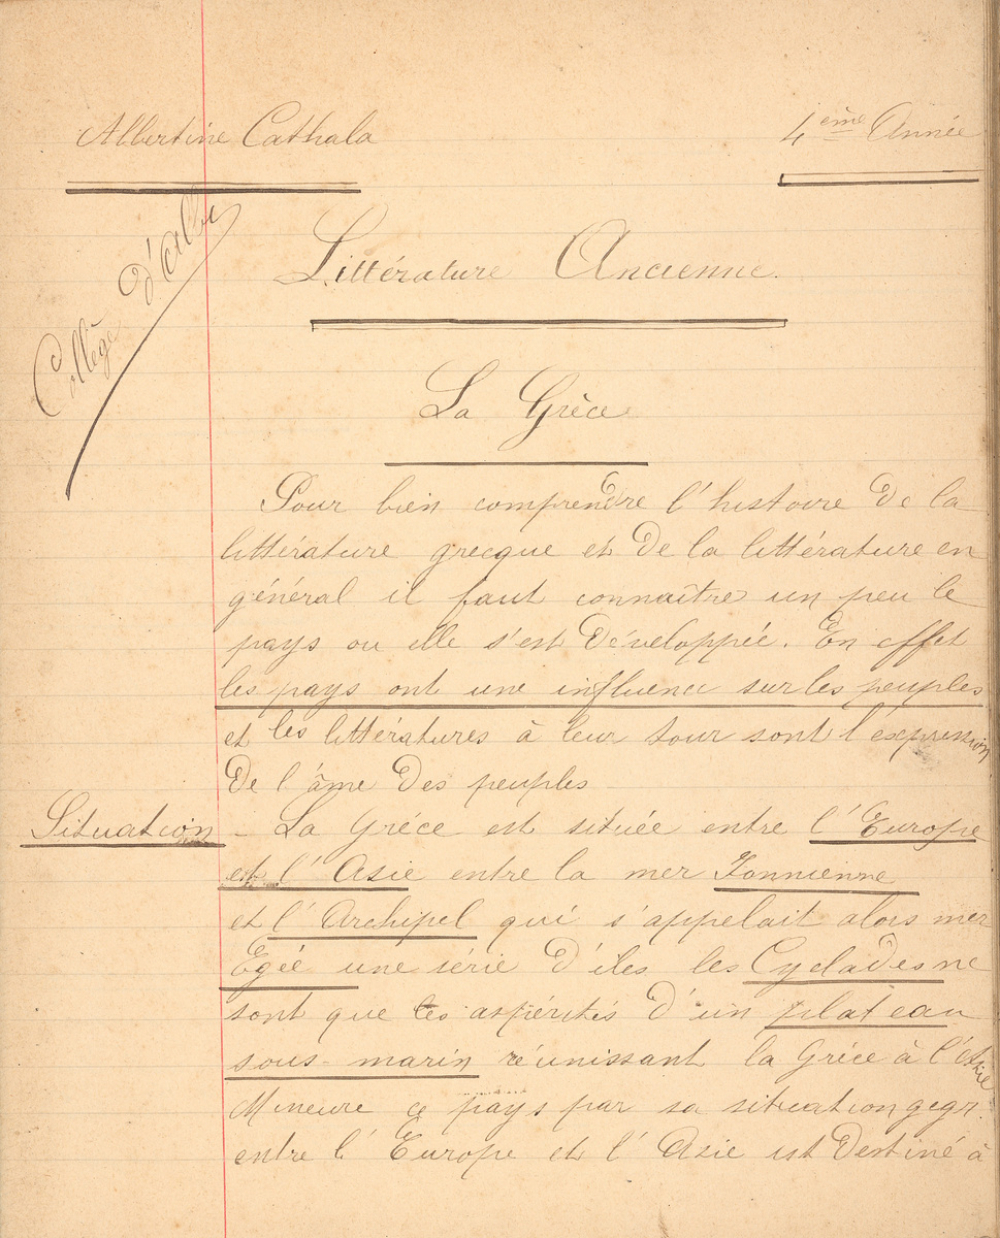 Albertine Cathala
4ème Année
Collège d'Albi
Littérature Ancienne.
La Grèce
Pour bien comprendre l'histoire de la
littérature grecque et de la littérature en
général il faut connaître un peu le
pays ou elle s'est développée. En effet
les pays ont une influence sur les peuples
et les littératures à leur tour sont l'expression
de l'âme des peuples
Situation - La Grèce est située entre l'Europe
et l'Asie entre la mer Ionnienne
et l'Archipel qui s'appelait alors mer
Egée une série d'îles, les Cyclades ne
sont que les aspérités d'un plateau
sous-marin réunissant la Grèce à l'Asie
Mineure ce pays par sa situation gegr.
entre l'Europe et l'Asie est destiné à